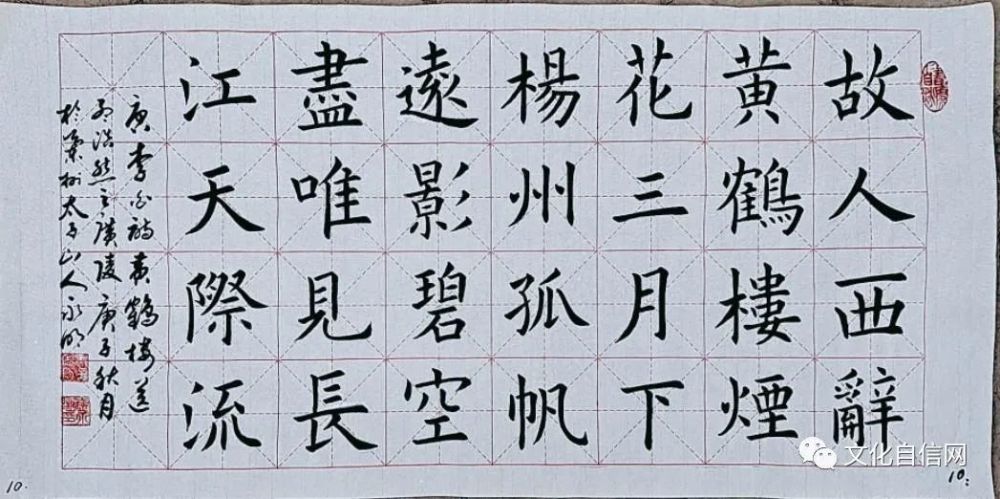 故人西辭
黄鶴樓煙
花三月下
楊州孤帆
遠影碧空
盡唯見長
江天際流
李白詩黄鶴楼送
孟浩然之廣陵庚子秋月
於州太子山人永明
10.
10:
文化自信网